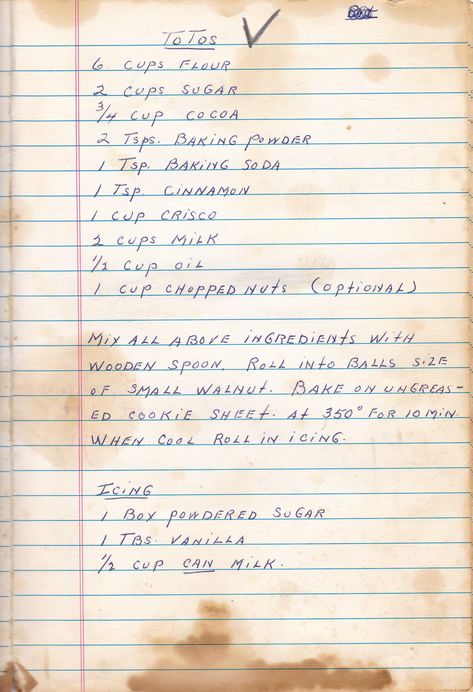 ToTos
6 CUPS FLOUR
2 CUPS SUGAR
3/4 CUP COCOA
2 Tsps. BAKING POWDER
1 Tsp. BAKING SODA
1 Tsp. CINNAMON
1 CUP CRISCO
2 CUPS MILK
1/2 CUP OIL
1 CUP CHOPPED NUTS (OPTIONAL)
MIX ALL ABOVE INGREDIENTS WITH
WOODEN SPOON. ROLL INTO BALLS SIZE
OF SMALL WALNUT. BAKE ON UNGREAS-
ED COOKIE SHEET. AT 350° FOR 10 MIN.
WHEN COOL ROLL IN ICING.
ICING
1 BOX POWDERED SUGAR
1 TBS. VANILLA
1/2 CUP CAN MILK.